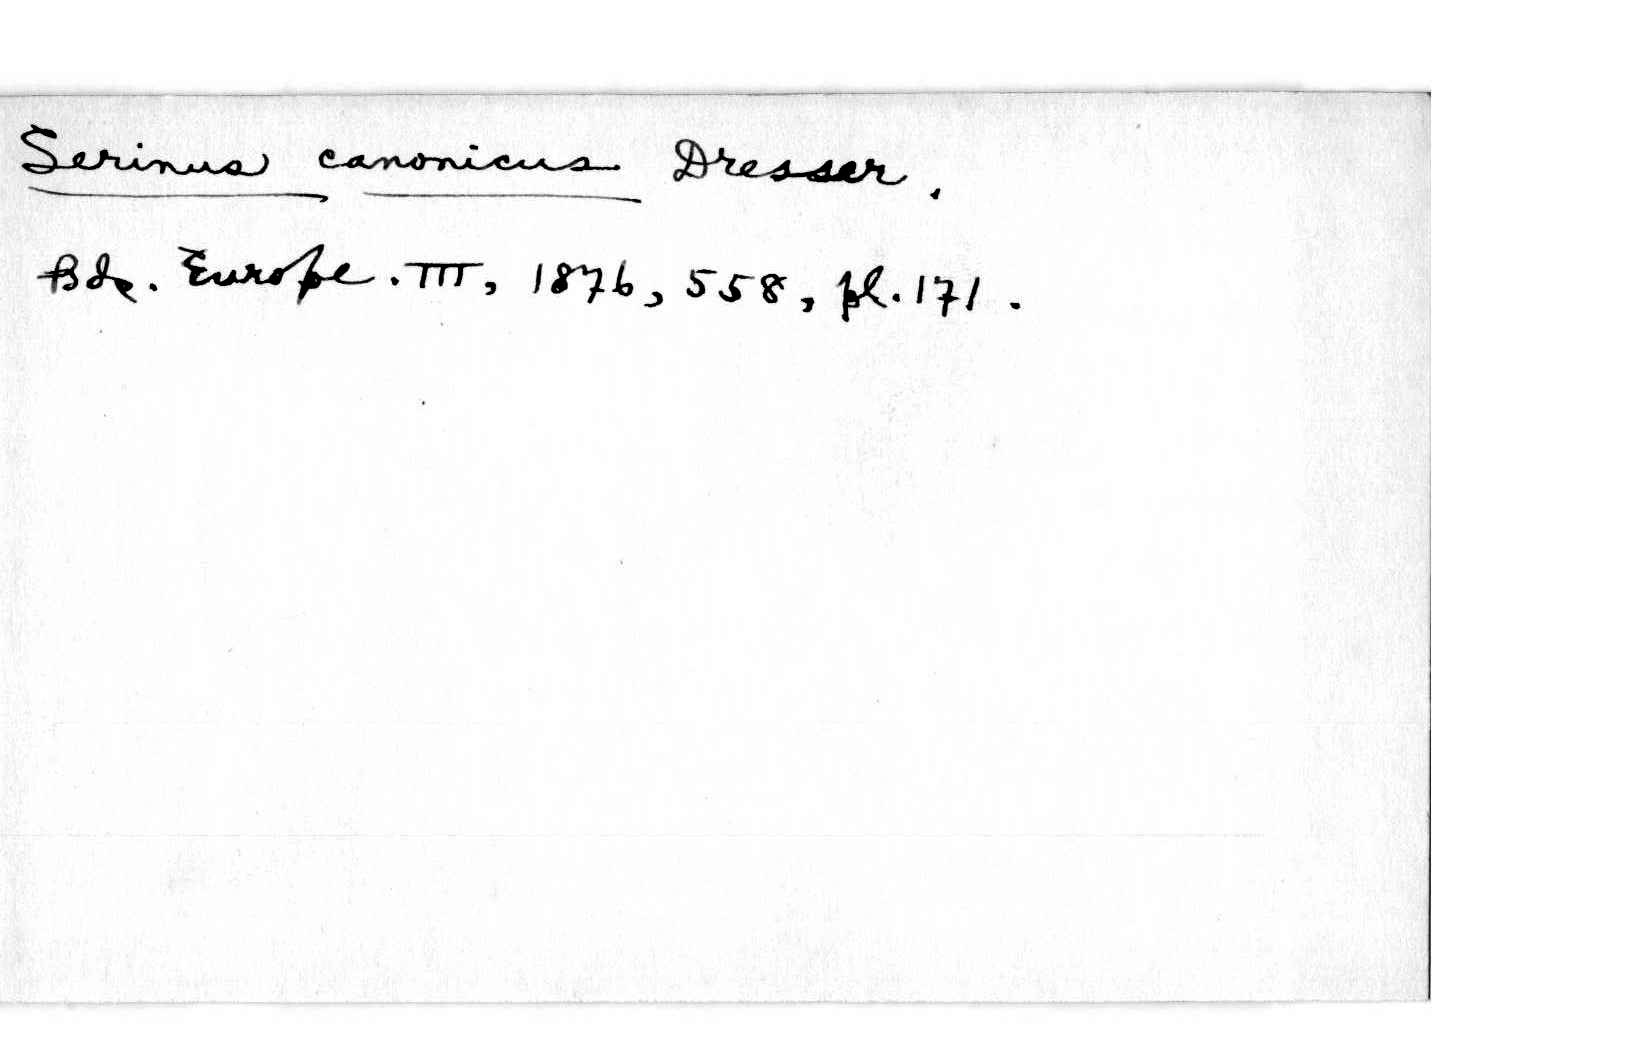 Serinus canonicus Dresser.
Bds. Europe. III, 1876, 558, pl. 171.